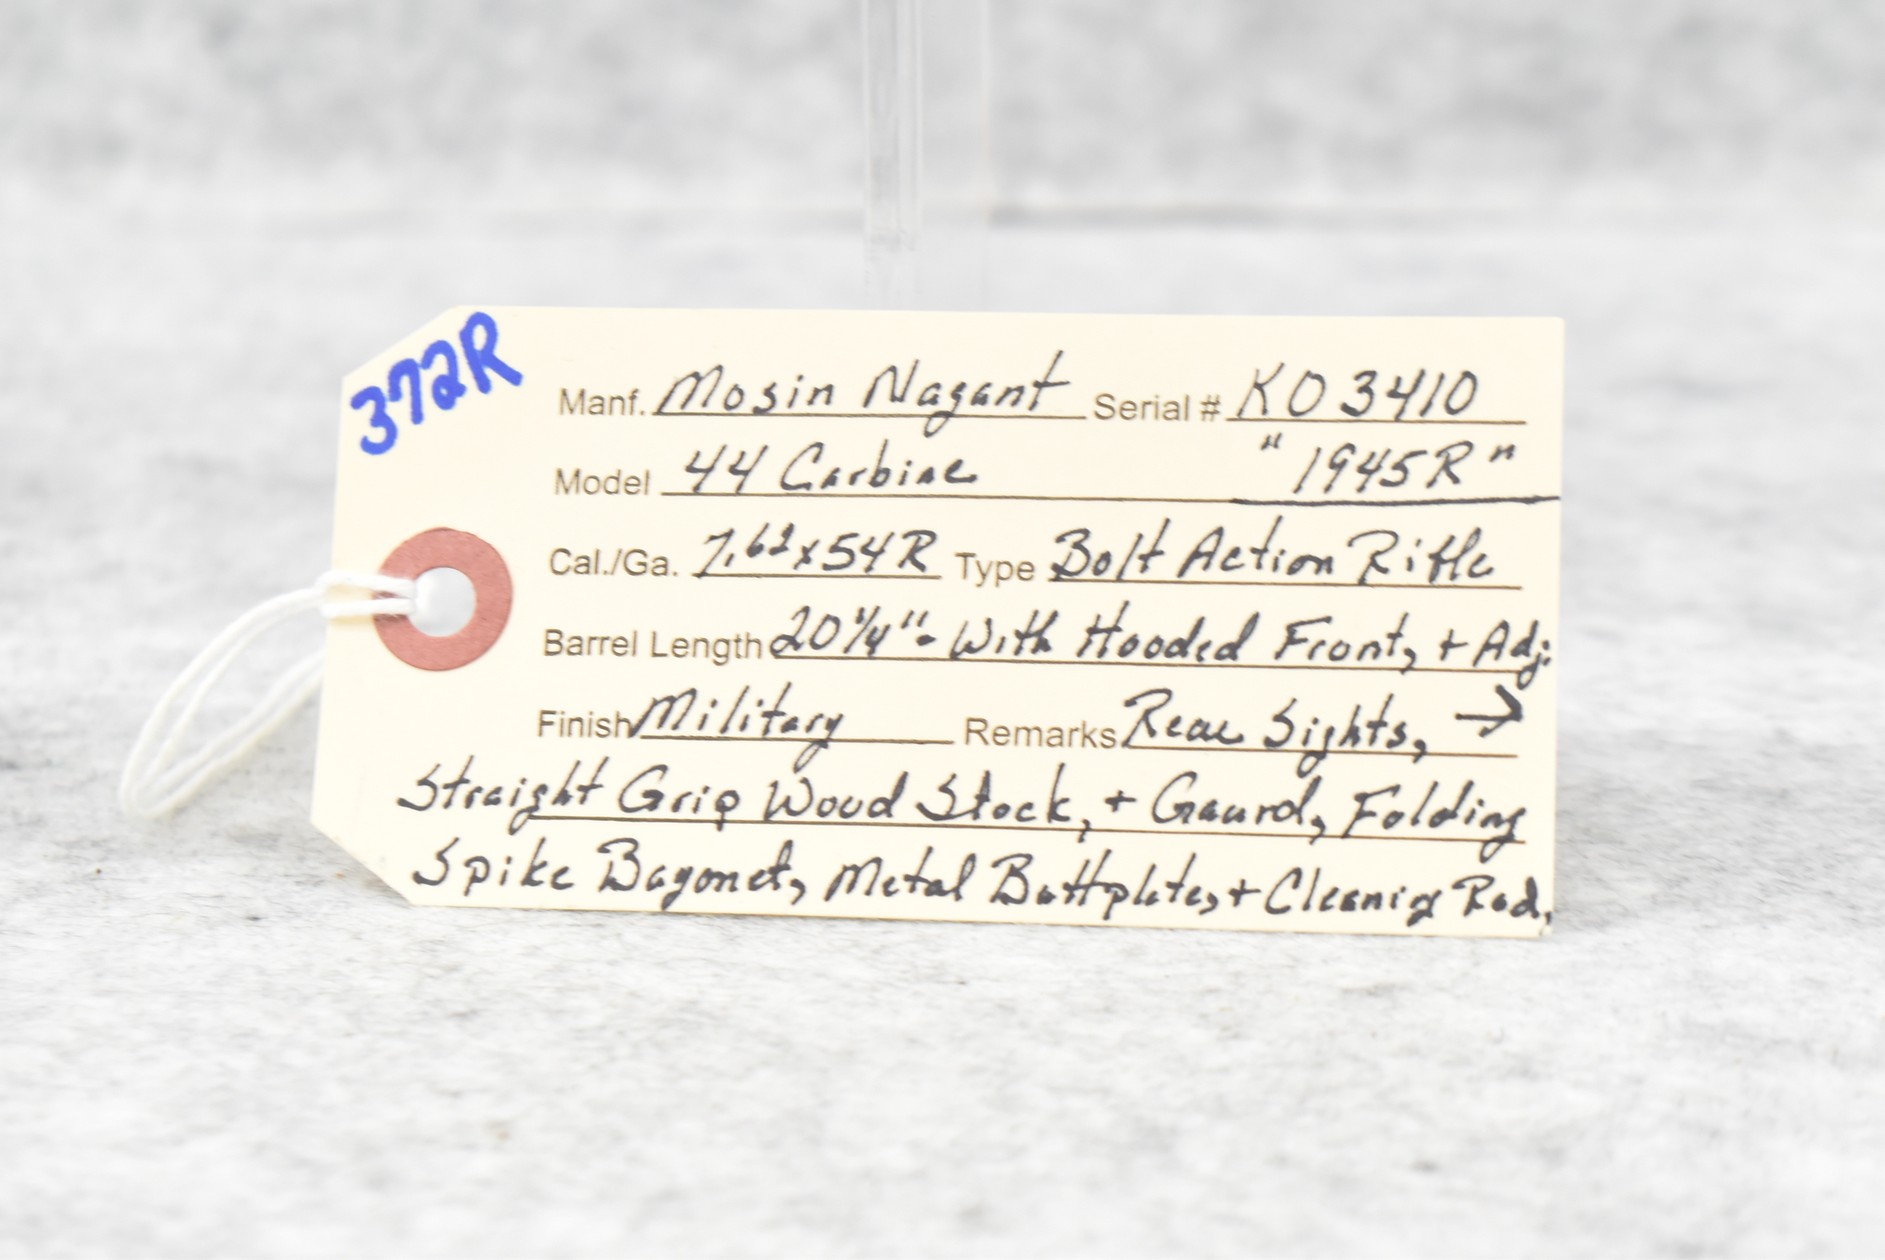 372R
Manf. Mosin Nagant Serial # KO3410
Model 44 Carbine "1945R"
Cal./Ga. 7.62x54R Type Bolt Action Rifle
Barrel Length 20 1/4"- With Hooded Front, + Adj.
Finish Military Remarks Rear Sights, →
Straight Grip Wood Stock, + Gaurd, Folding
Spike Bayonet, Metal Buttplate, + Cleaning Rod.